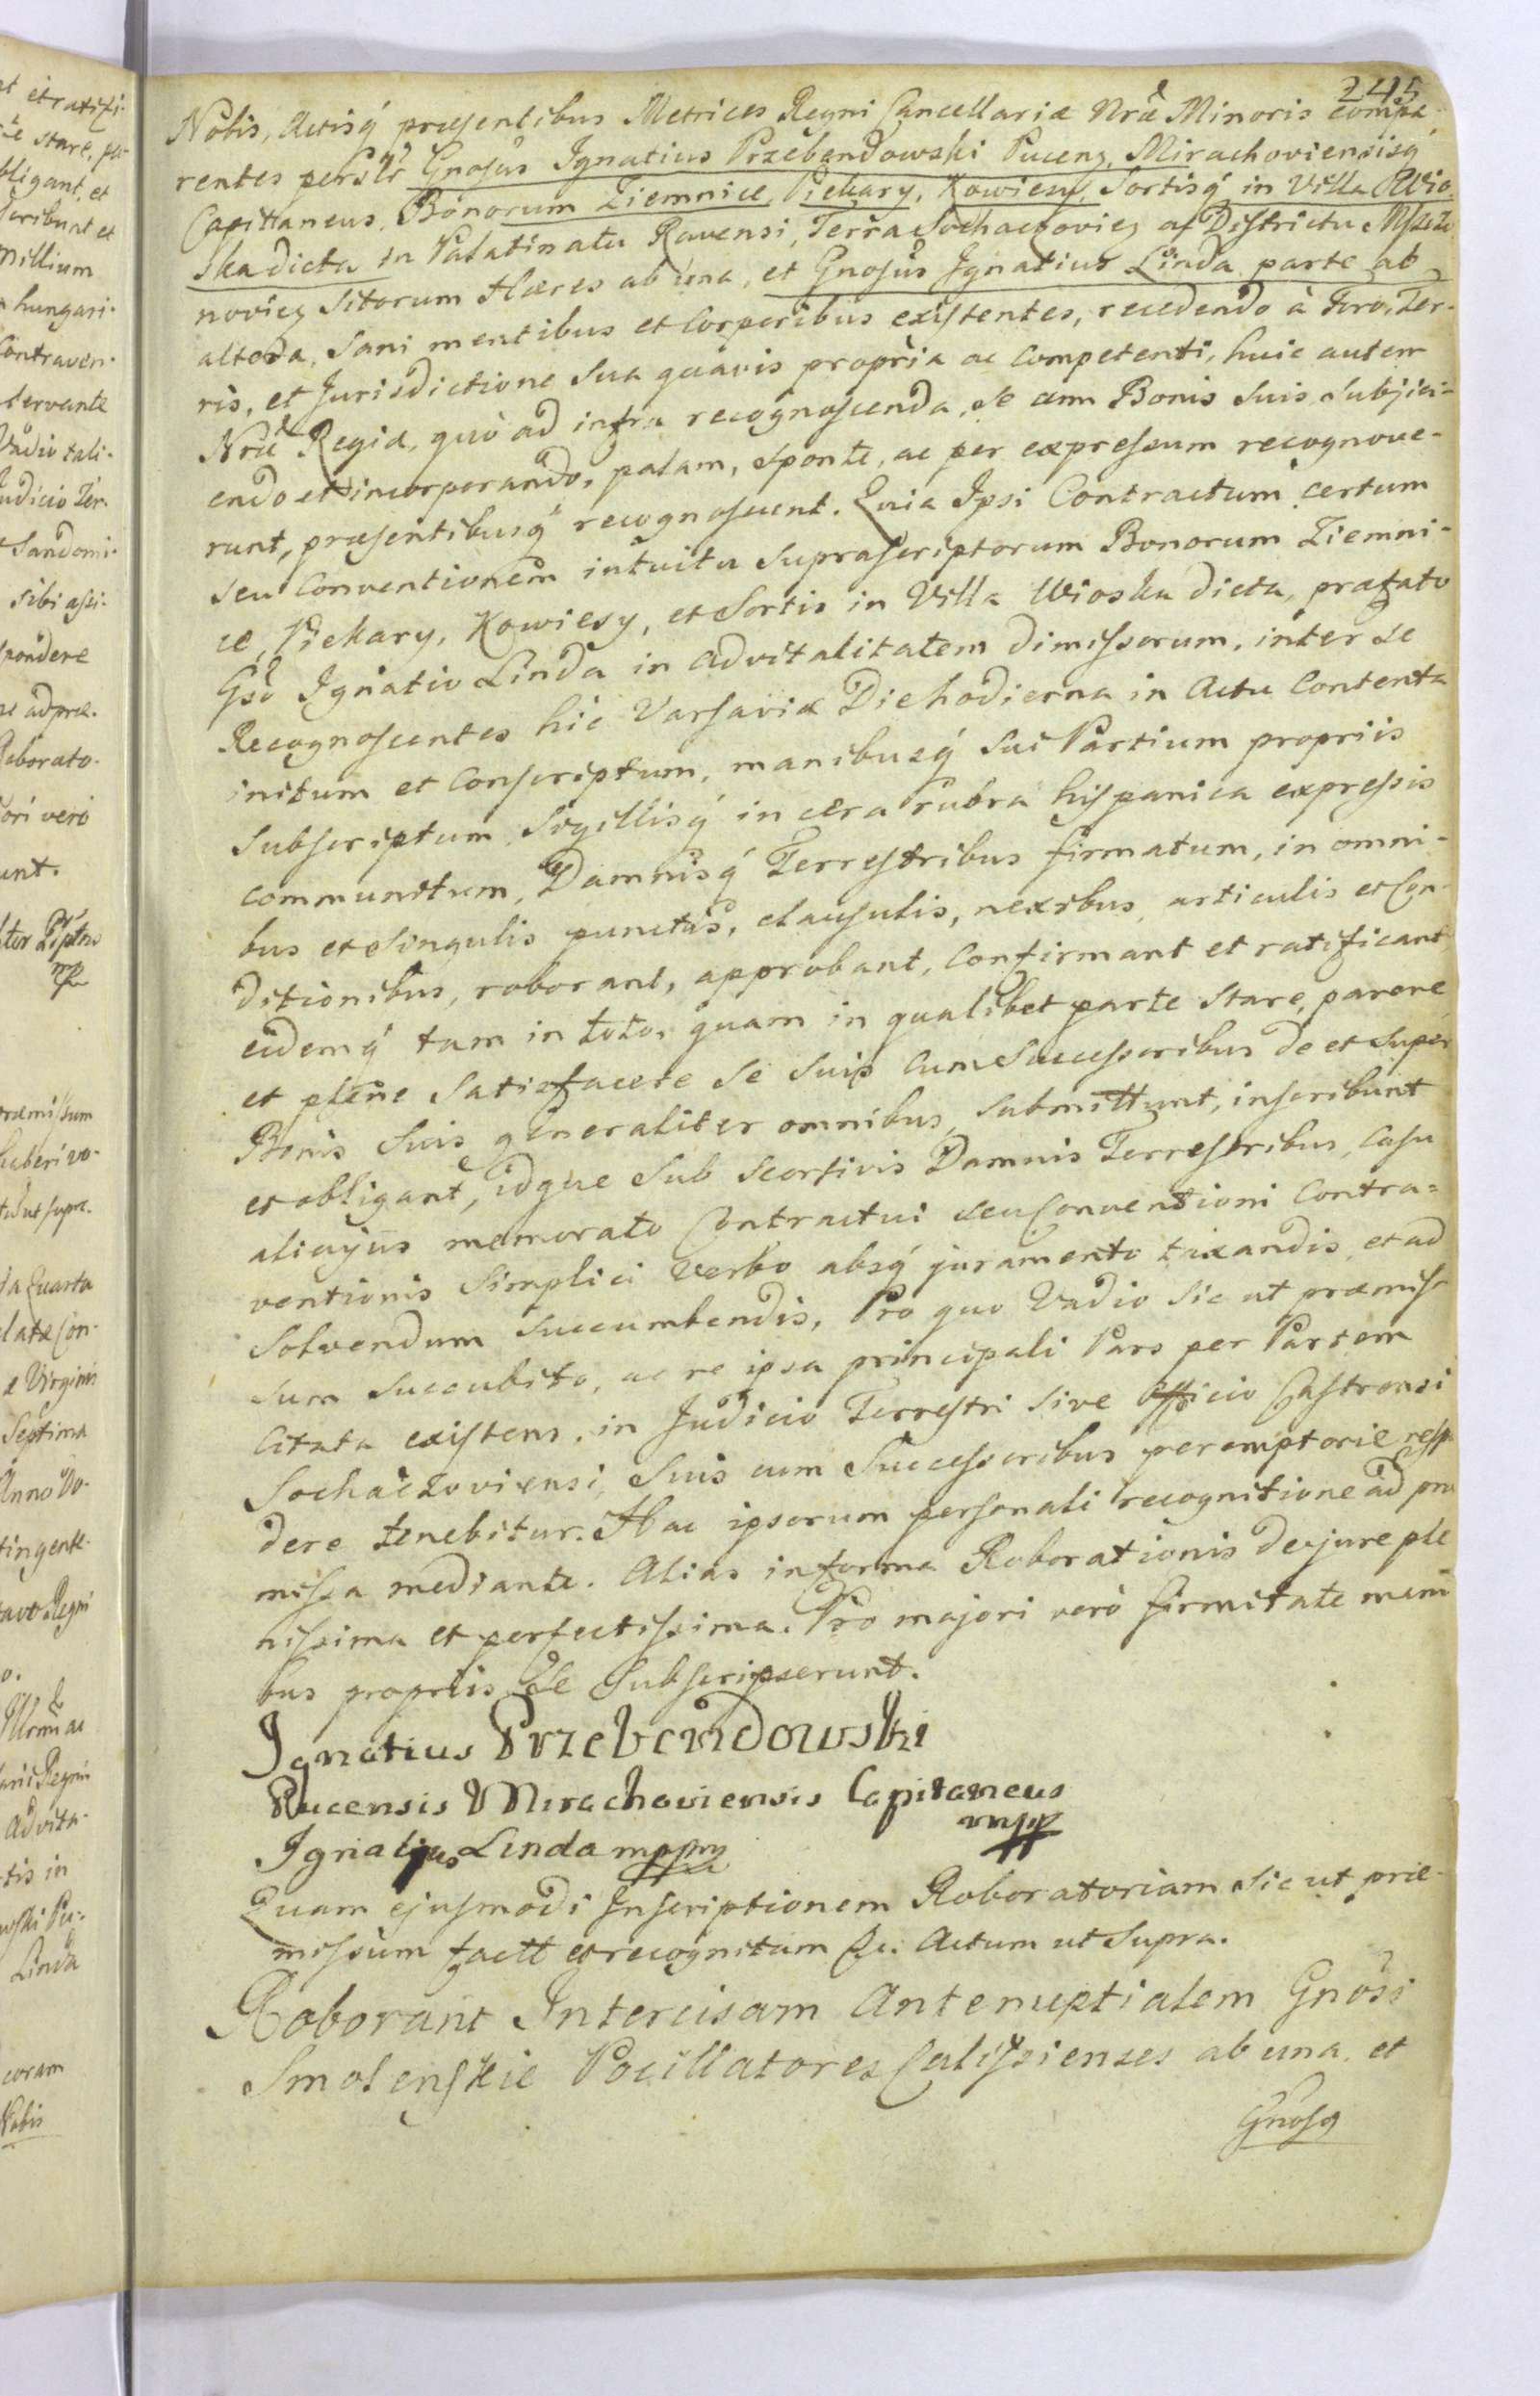 245
Nobis, Actisq́ præsentibus Metrices Regni Cancellariæ Nræ Minoris compa-
rentes persłr Gnosus Ignatius Przebendowski Pucen, Mirachoviensisq́
Capittaneus, Bonorum Ziemnice, Piekary, Kowiesy, Sortisq́ in Villa Wio-
ska dicta in Palatinatu Ravensi, Terra Sochaczovien ac Districtu Mszczo-
novien Sitorum Hæres ab una, et Gnosus Ignatius Linda parte ab
altera, Sani mentibus et Corporibus existentes, recedendo à Foro, Ter-
ris, et Jurisdictione Sua quavis propria ac Competenti, huic autem
Nræ Regiæ, quò ad infra recognoscenda, se cum Bonis Suis Subjici-
endo et incorporando, palam, Sponte, ac per expressum recognove-
runt, præsentibusq́ recognoscunt. Quia Ipsi Contractum certum
seu Conventionem intuitu Suprascriptorum Bonorum Ziemni-
ce, Piekary, Kowiesy, et Sortis in Villa Wioska dicta, præfato
Gso Ignatio Linda in advitalitatem dimissorum, inter se
Recognoscentes hic Varsaviæ Die hodierna in Actu Contenta
initum et Conscriptum, manibusq́ Sui Partium propriis
Subscriptum, Sigillisq́ in cera rubra hispanica expressis
communitum, Damnisq́ Terrestribus firmatum, in omni-
bus et Singulis punctis, clausulis, nexibus, articulis et Con-
ditionibus, roborant, approbant, Confirmant et ratificant,
eidemq́ tam in toto, quam in qualibet parte Stare, parere
et plene Satisfacere Se Suis cum Successoribus de et Super
Bonis Suis generaliter omnibus, Submittunt, inscribunt
et obligant, idque Sub Seorsivis Damnis Terrestribus, Casu
alicujus memorato Contractui seu Conventioni Contra=
ventionis Simplici Verbo absq́ juramento taxandis, et ad
Solvendum Succumbendis, Pro quo Vadio sic ut præmis-
sum Succubito, ac re ipsa principali Pars per Partem
Citata existens, in Judicio Terrestri Sive Officio Castrensi
Sochaczoviensi, Suis cum Successoribus peremptorie respo
dere tenebitur. Hac ipsorum personali recognitione ad præ
missa mediante. Alias in forma Roborationis de jure ple
nissima et perfectissima. Pro majori verò firmitate mani
bus propriis Se Subscripserunt.
Ignatius Przebendowski
Pucensis & Mirachoviensis Capitaneus
mpp
Ignatius Linda mppria
Quam ejusmodi Inscriptionem Roboratoriam sic ut præ-
missum factt et recognitam &c. Actum ut Supra.
Roborant Intercisam Antenuptialem Gnosi
Smolenskie Pocillatores Calissienses ab una, et
Gnosa